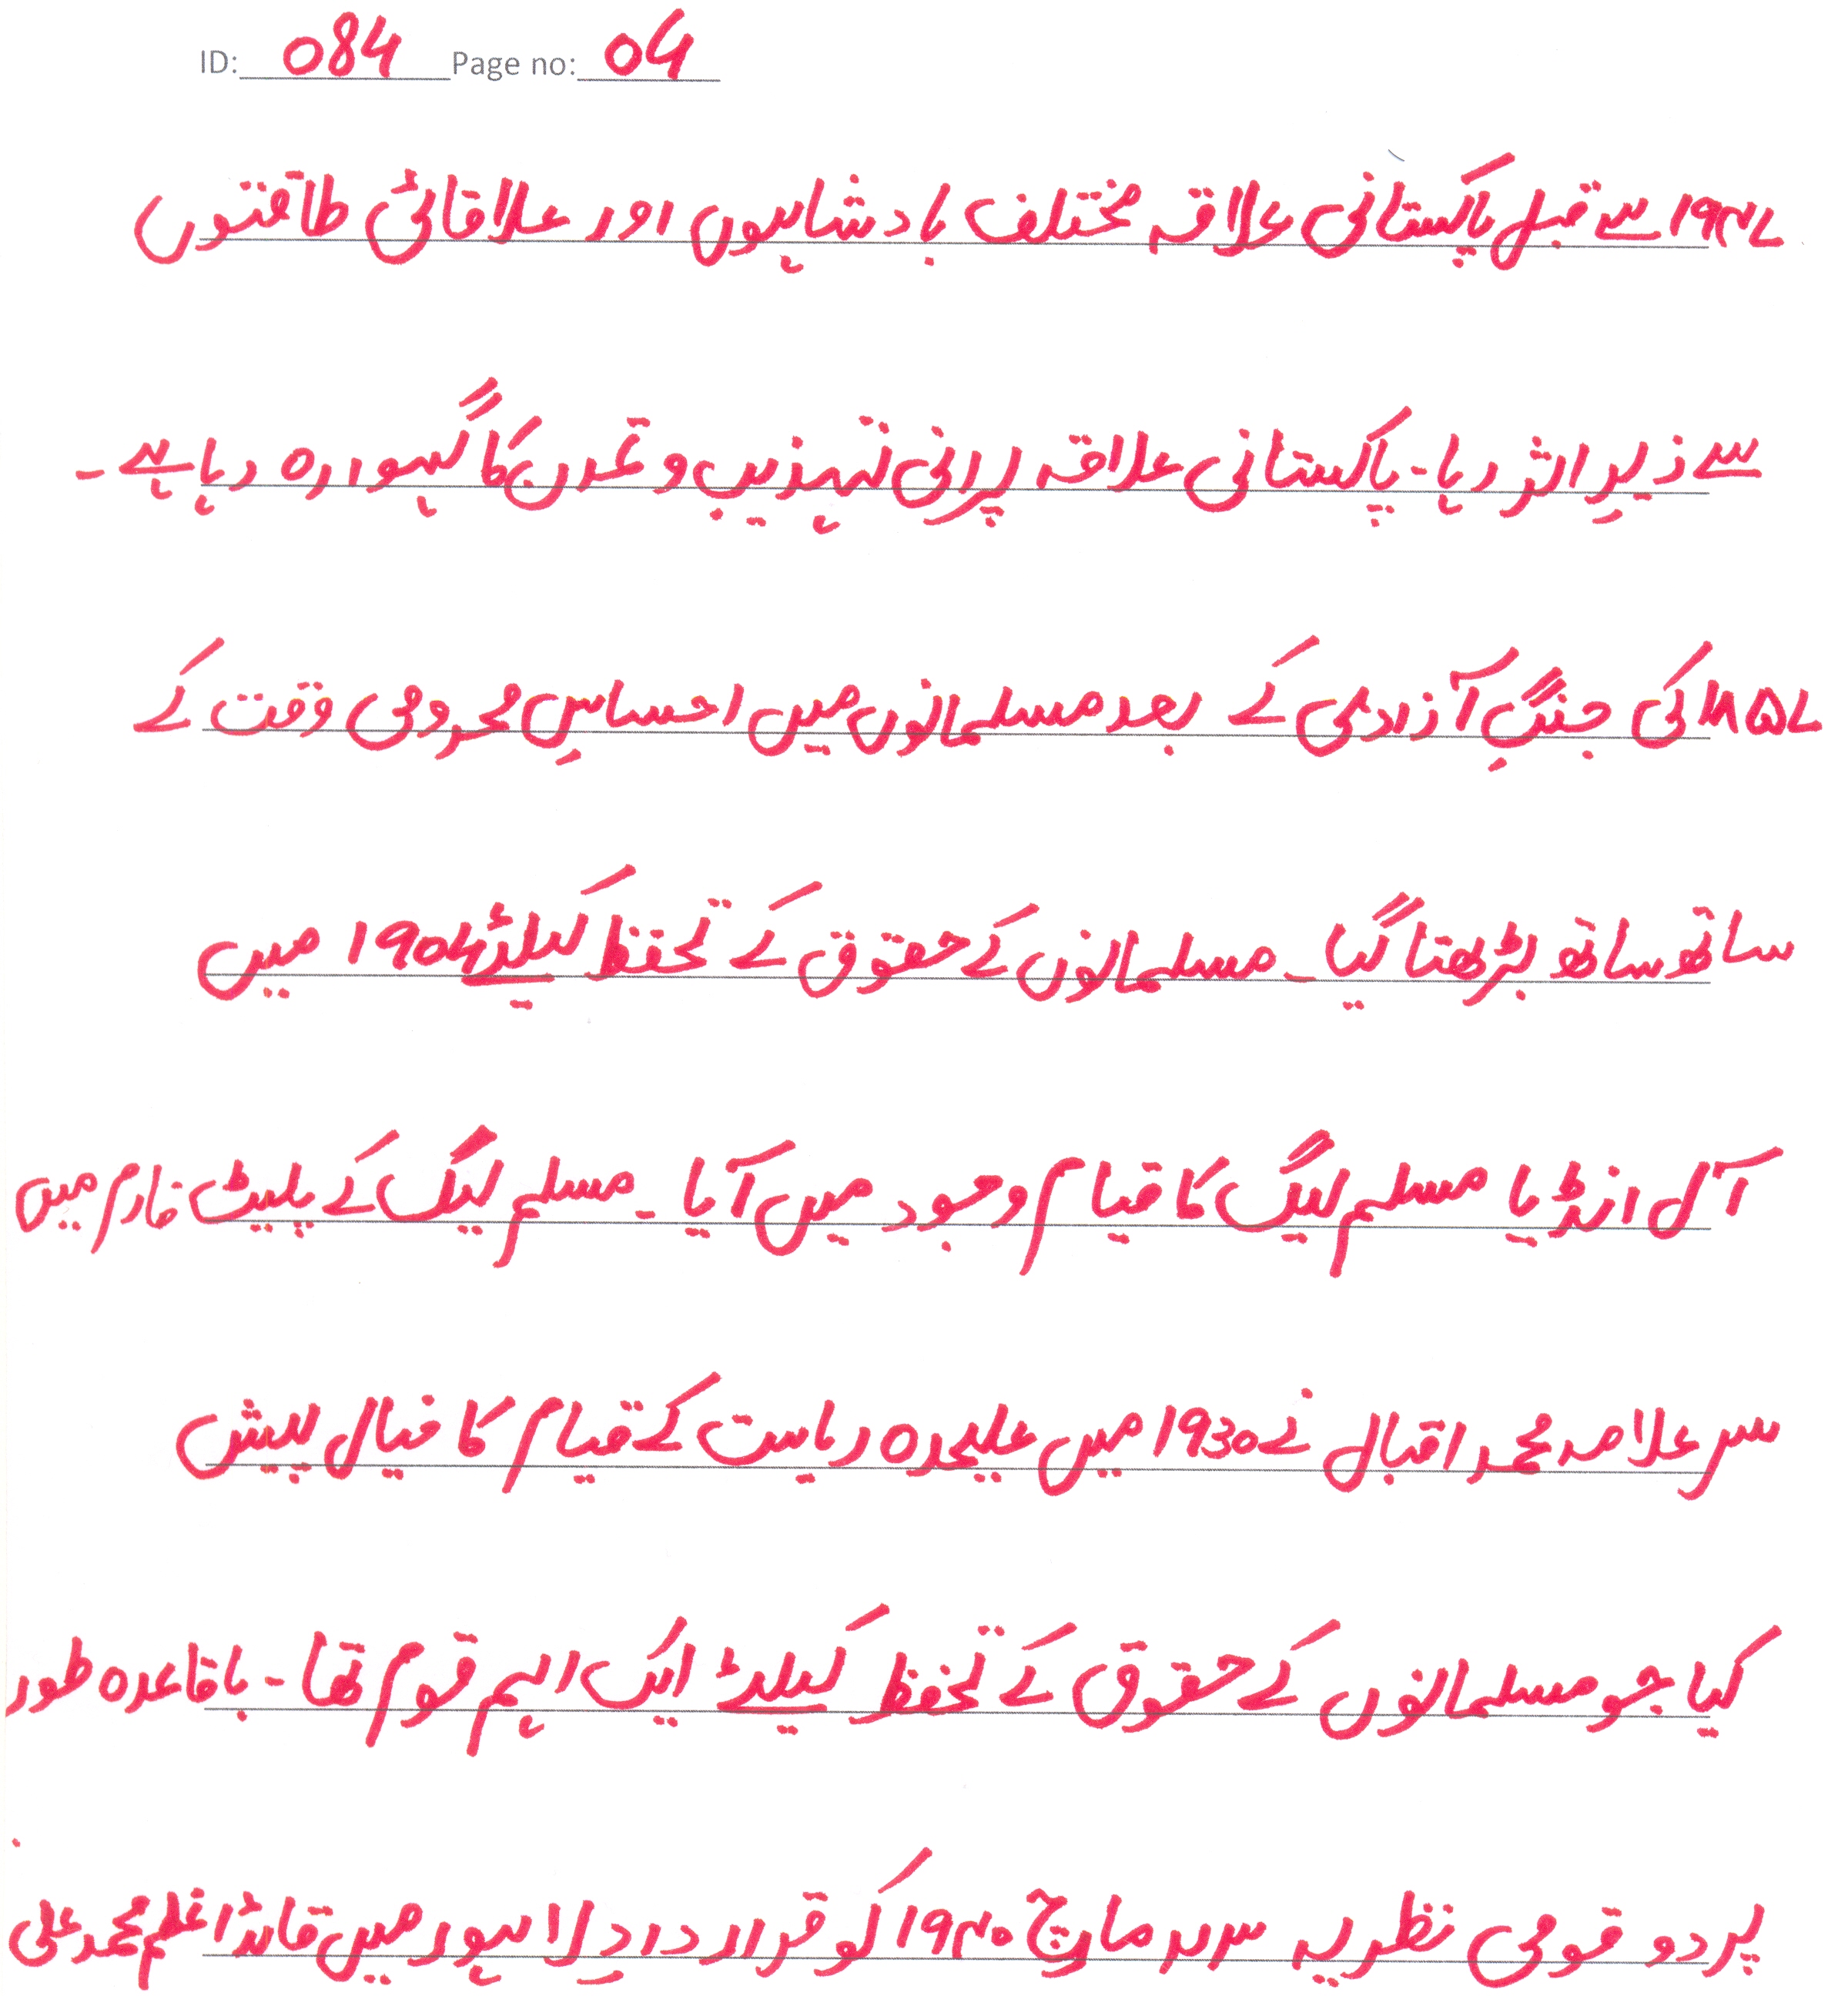 ID: 084 Page no: 04
۱۹۴۷ سے قبل پاکستانی علاقہ مختلف بادشاہوں اور علاقائی طاقتوں
سے زیرِ اثر رہا۔ پاکستانی علاقہ پرانی تہذیب و تمدن کا گہوارہ رہا ہے۔
۱۸۵۷ کی جنگِ آزادی کے بعد مسلمانوں میں احساسِ محرومی وقت کے
ساتھ ساتھ بڑھتا گیا۔ مسلمانوں کے حقوق کے تحفظ کیلئے میں
آل انڈیا مسلم لیگ کا قیام وجود میں آیا۔ مسلم لیگ کے پلیٹ فارم میں
سر علامہ محمد اقبال نے 1930 میں علیحدہ ریاست کے قیام کا خیال پیش
کیا جو مسلمانوں کے حقوق کے تحفظ کیلئے ایک اہم قوم تھا۔ باقاعدہ طور
پر دو قومی نظریہ ۲۳ مارچ ۱۹۴۰ کو قراردادِ لاہور میں قائداعظم محمد علی